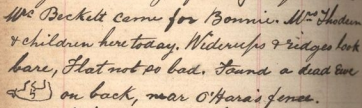 Mr Beckett came for Bonnie. Mrs
& children here today. & ridges look
bare, Flat not so bad. Found a dead Ewe
on back, near O'Haras fence.